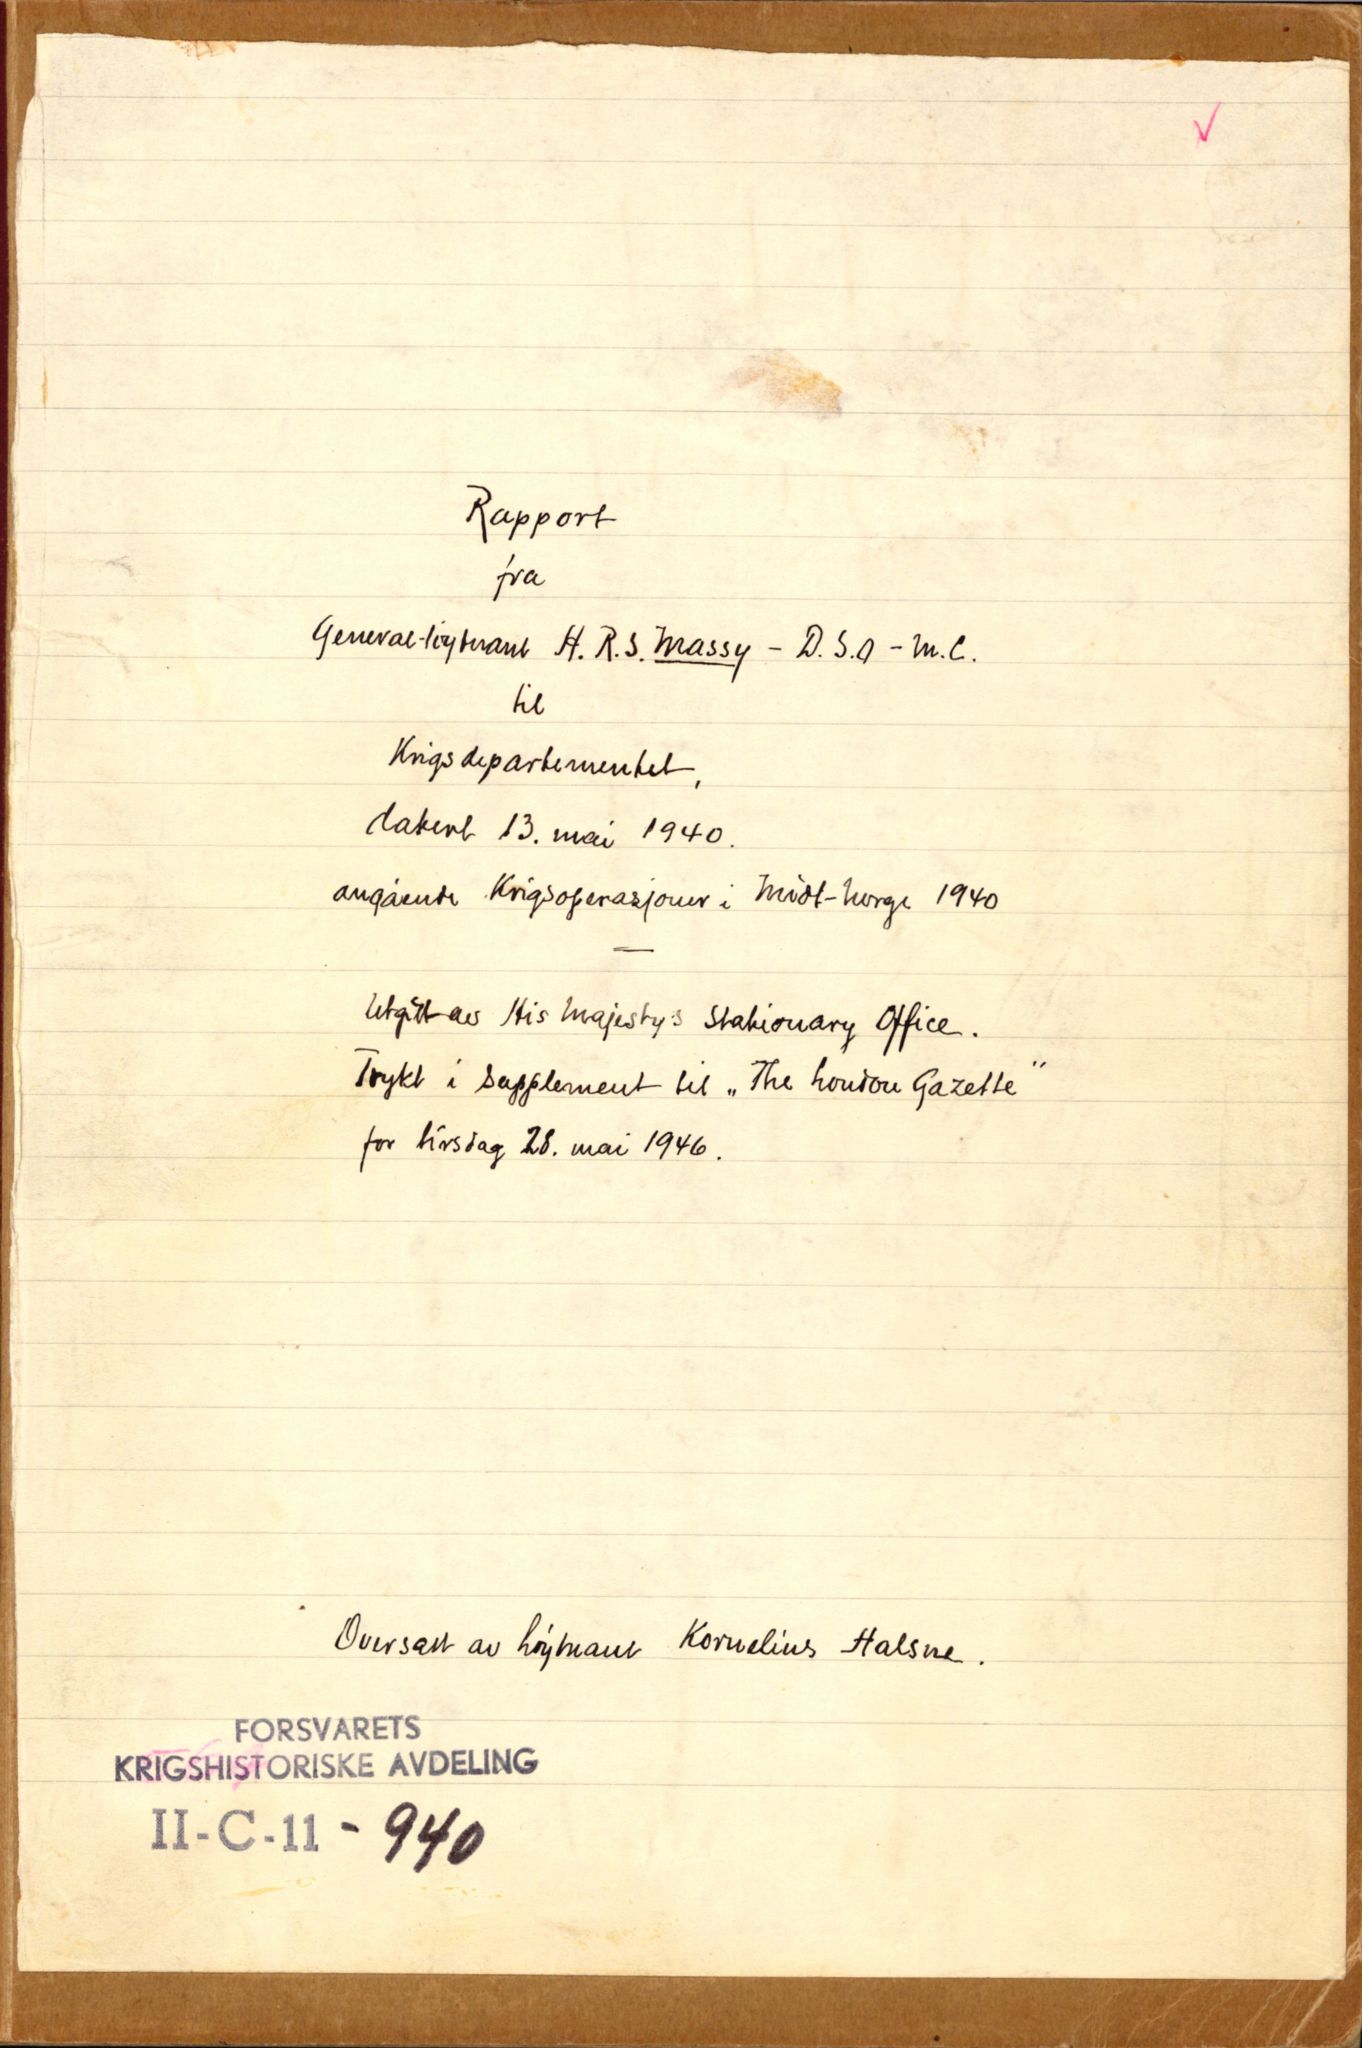 Rapport
fra
General-löytnant H. R. S. Massy - D. S. O - M. C.
til
Krigsdepartementet,
datert 13. mai 1940.
angående Krigsoperasjoner i Midt-Norge 1940
—
Utgitt av His Majesty's Stationary Office.
Trykt i Supplement til „The London Gazette"
for tirsdag 28. mai 1946.
Oversatt av löytnant Kornelius Halsne.
FORSVARETS
KRIGSHISTORISKE AVDELING
II-C-11 - 940